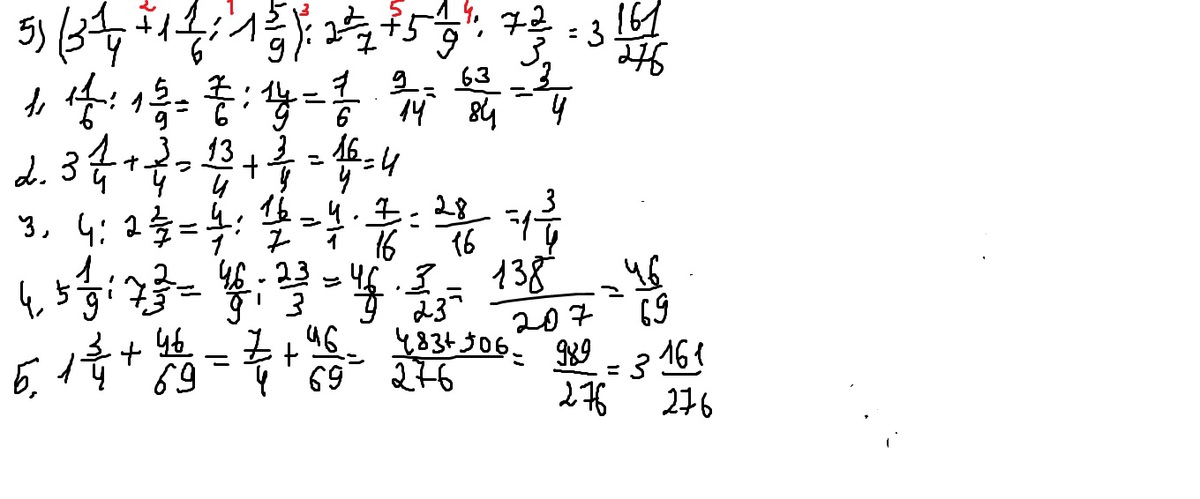 5) (3 1/4 + 1 1/6 : 1 5/9) : 2 2/7 + 5 1/9 : 7 2/3 = 3 161/276
1. 1 1/6 : 1 5/9 = 7/6 : 14/9 = 7/6 · 9/14 = 63/84 = 3/4
2. 3 1/4 + 3/4 = 13/4 + 3/4 = 16/4 = 4
3. 4 : 2 2/7 = 4/1 : 16/7 = 4/1 · 7/16 = 28/16 = 1 3/4
4. 5 1/9 : 7 2/3 = 46/9 : 23/3 = 46/9 · 3/23 = 138/207 = 46/69
5. 1 3/4 + 46/69 = 7/4 + 46/69 = 483+506/276 = 989/276 = 3 161/276